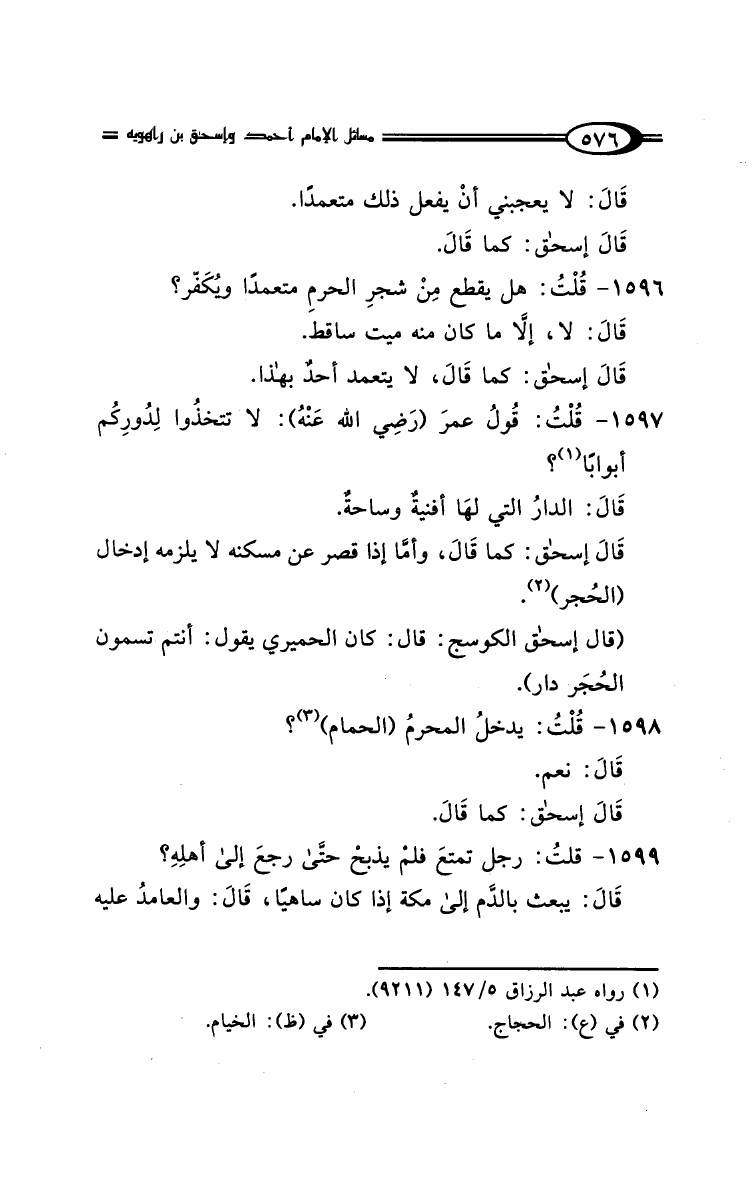 ٥٧٦ مسائل الإمام أحمد وإسحق بن راهويه
قَالَ: لا يعجبني أنْ يفعل ذلك متعمدًا.
قَالَ إسحٰق: كما قَالَ.
١٥٩٦- قُلْتُ: هل يقطع مِنْ شجرِ الحرمِ متعمدًا ويُكَفّر؟
قَالَ: لا، إلَّا ما كان منه ميت ساقط.
قَالَ إسحٰق: كما قَالَ، لا يتعمد أحدٌ بهٰذا.
١٥٩٧- قُلْتُ: قُولُ عمرَ (رَضِي الله عَنْهُ): لا تتخذُوا لِدُورِكُم
أبوابًا(١)؟
قَالَ: الدارُ التي لهَا أفنيةٌ وساحةٌ.
قَالَ إسحٰق: كما قَالَ، وأمَّا إذا قصر عن مسكنه لا يلزمه إدخال
(الحُجر)(٢).
(قال إسحٰق الكوسج: قال: كان الحميري يقول: أنتم تسمون
الحُجَر دار).
١٥٩٨- قُلْتُ: يدخلُ المحرمُ (الحمام)(٣)؟
قَالَ: نعم.
قَالَ إسحٰق: كما قَالَ.
١٥٩٩- قلتُ: رجل تمتعَ فلمْ يذبحْ حتَّىٰ رجعَ إلىٰ أهلِهِ؟
قَالَ: يبعث بالدَّم إلىٰ مكة إذا كان ساهيًا، قَالَ: والعامدُ عليه
(١) رواه عبد الرزاق ١٤٧/٥ (٩٢١١).
(٢) في (ع): الحجاج. (٣) في (ظ): الخيام.